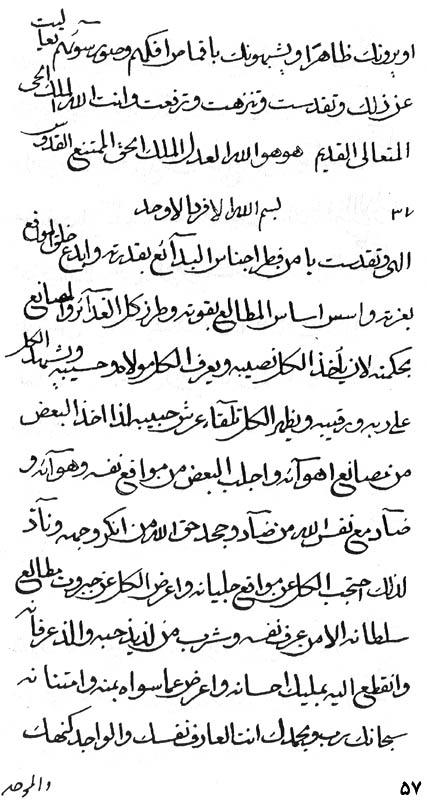 او يرونك ظاهرا و يشبهونك باقماص افكهم وصور سوئهم تعاليت
عن ذلك و تقدست و تنزهت و ترفعت وانت الله الملك الحى
المتعالى القديم هو هو الله العدل الملك الحق الممتنع القدوس
٣٧ بسم الله الافرد الاوحد
الهى و تقدست يا من فطر اجناس البدائع بقدرته وابدع خلق
بعزته و اسس اساس المطالع بقوته و طرز كل الغدائر والصانع
بحكمته لان يأخذ الكل نصيبه و يعرف الكل مولاه وحسيبه ويشهد الكل
على ربه و رقيبه و يظهر الكل تلقاء عرش حبيبه لذا اخذ البعض
من مصانع اهوائه واجلب البعض من مواقع نفسه وهوائه و
ضاد مع نفس الله من ضاد و جحد حق الله من انكر وجهه و ناد
لذلك احتجب الكل عن مواقع جلياته واعرض الكل عن جبروت مطالع
سلطانه الا من عرف نفسه وشرب من لذيذ حبه والذ عرفانه
وانقطع اليه بمليك احسانه واعرض عما سواه بمنه وامتنانه
سبحانك رب وبحمدك انت العارف نفسك والواجد كنهك
٥٧ والموحد